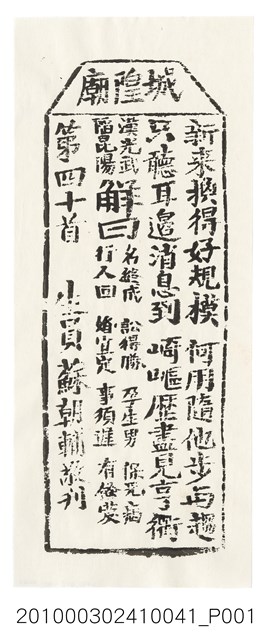 城隍廟
新來換得好規模 何用隨他步與趨
只聽耳邉消息到 崎嶇歷盡見亨衢
漢光武
陷昆陽
解曰
名終成 訟得勝 孕產男 保无病
行人回 婚宜定 事須進 有啓發
第四十首 生員蘇朝輔敬刊
201000302410041_P001